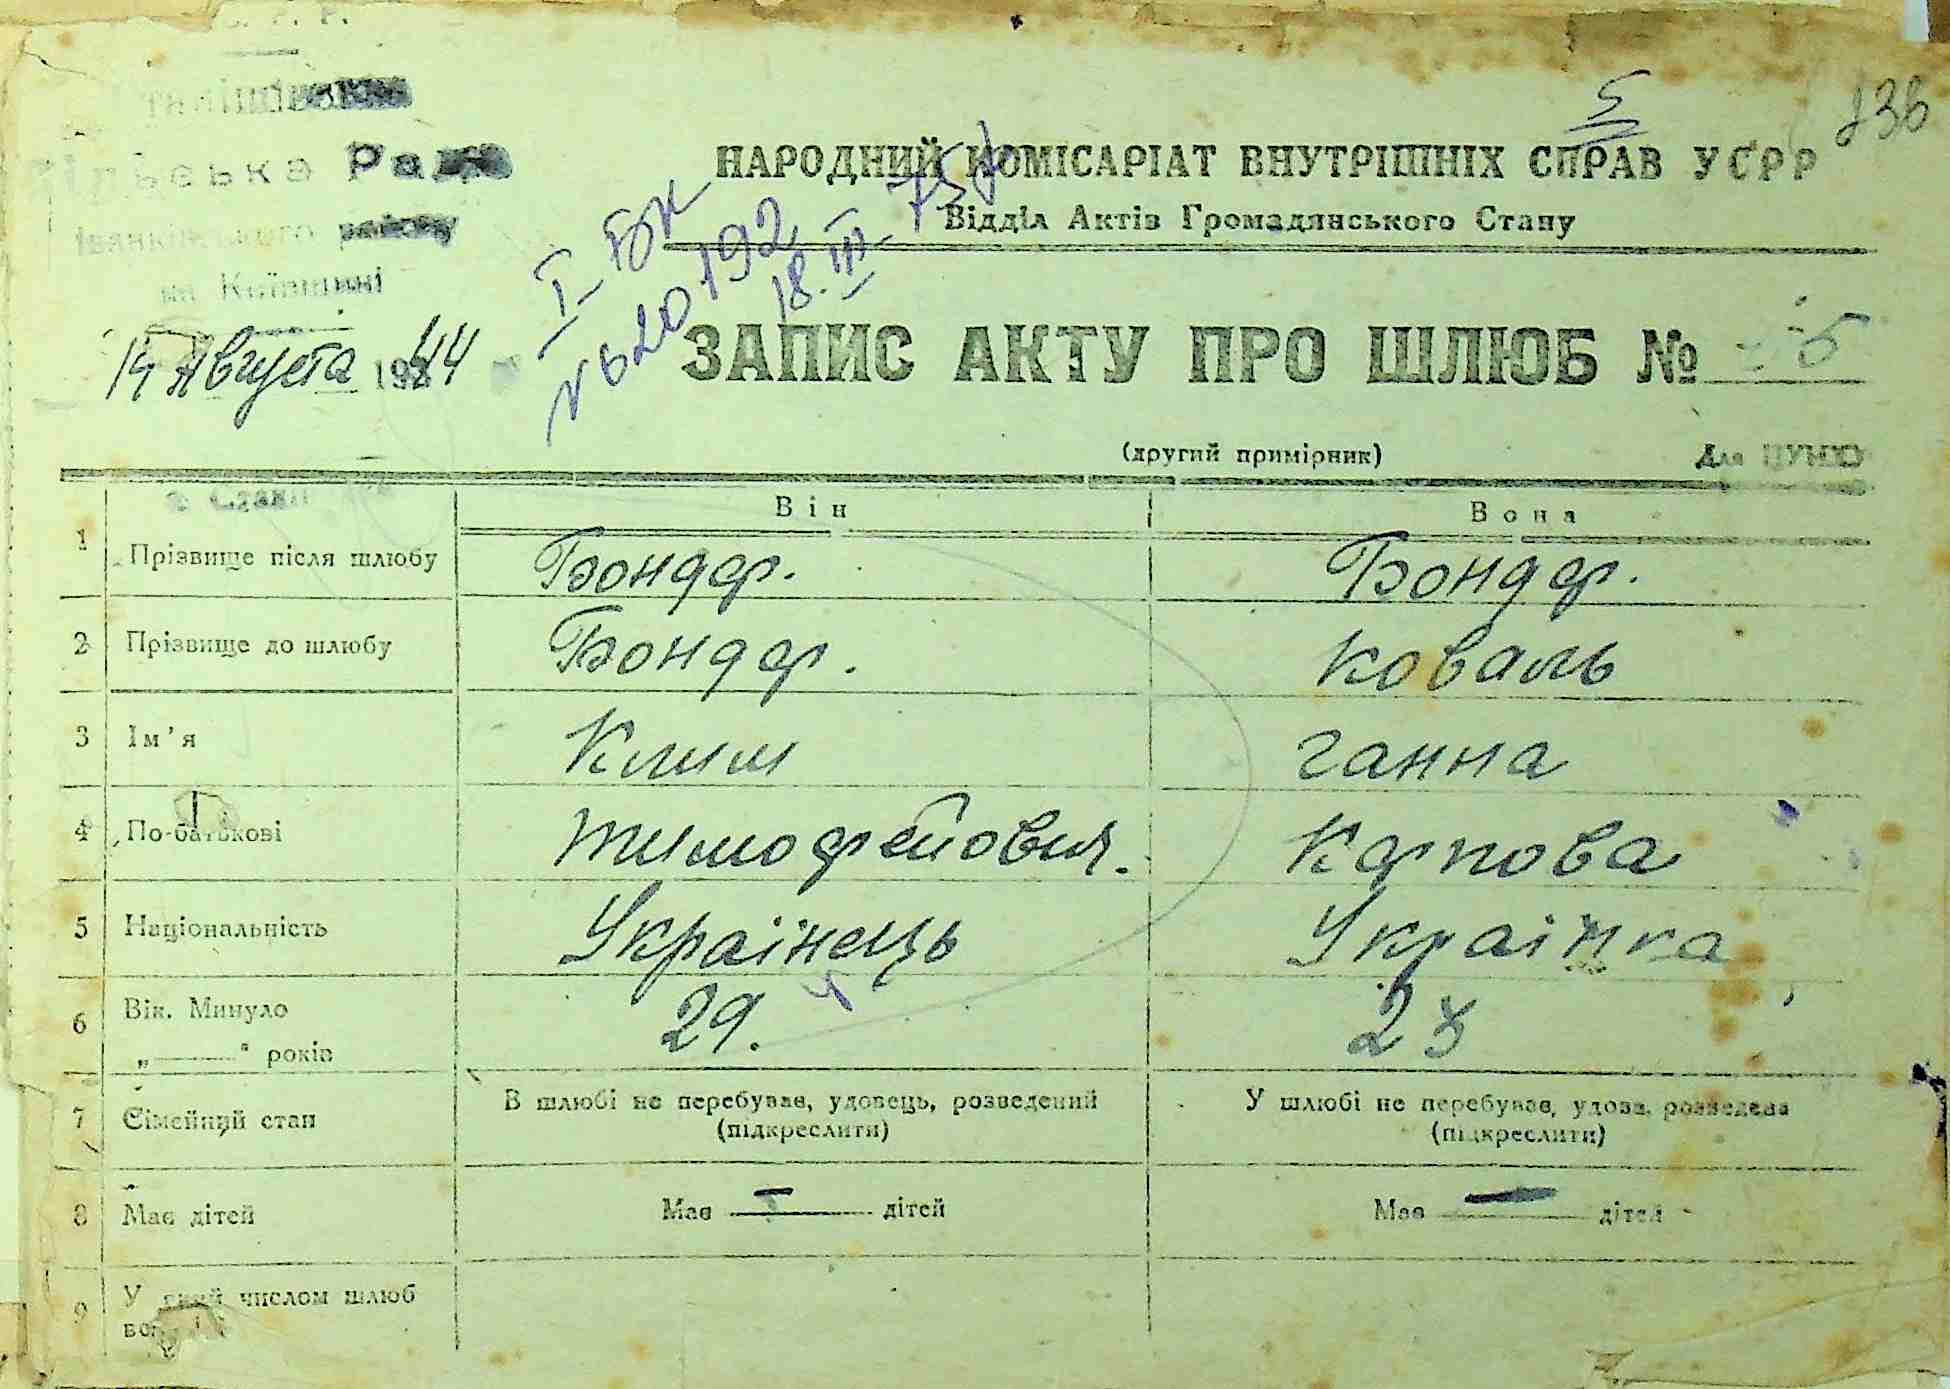 Р.
сільська Рада
Іванківського району
на Київщині
14 Августа 1944
138
5
НАРОДНИЙ КОМІСАРІАТ ВНУТРІШНІХ СПРАВ УСРР
Відділ Актів Громадянського Стану
І-БК
№620192
18.III-75
ЗАПИС АКТУ ПРО ШЛЮБ № 5
(другий примірник) Для ЦУНХУ
Він Вона
1 Прізвище після шлюбу Бондар. Бондар.
2 Прізвище до шлюбу Бондар. Коваль
3 Ім'я Клим ганна
4 По-батькові тимофейович. Карпова
5 Національність Українець Українка
6 Вік. Минуло 29. 23
„———" років
7 Сімейний стан В шлюбі не перебував, удовець, розведений У шлюбі не перебував, удова, розведена
(підкреслити) (підкреслити)
8 Має дітей Має — дітей Має — дітей
9 У який числом шлюб